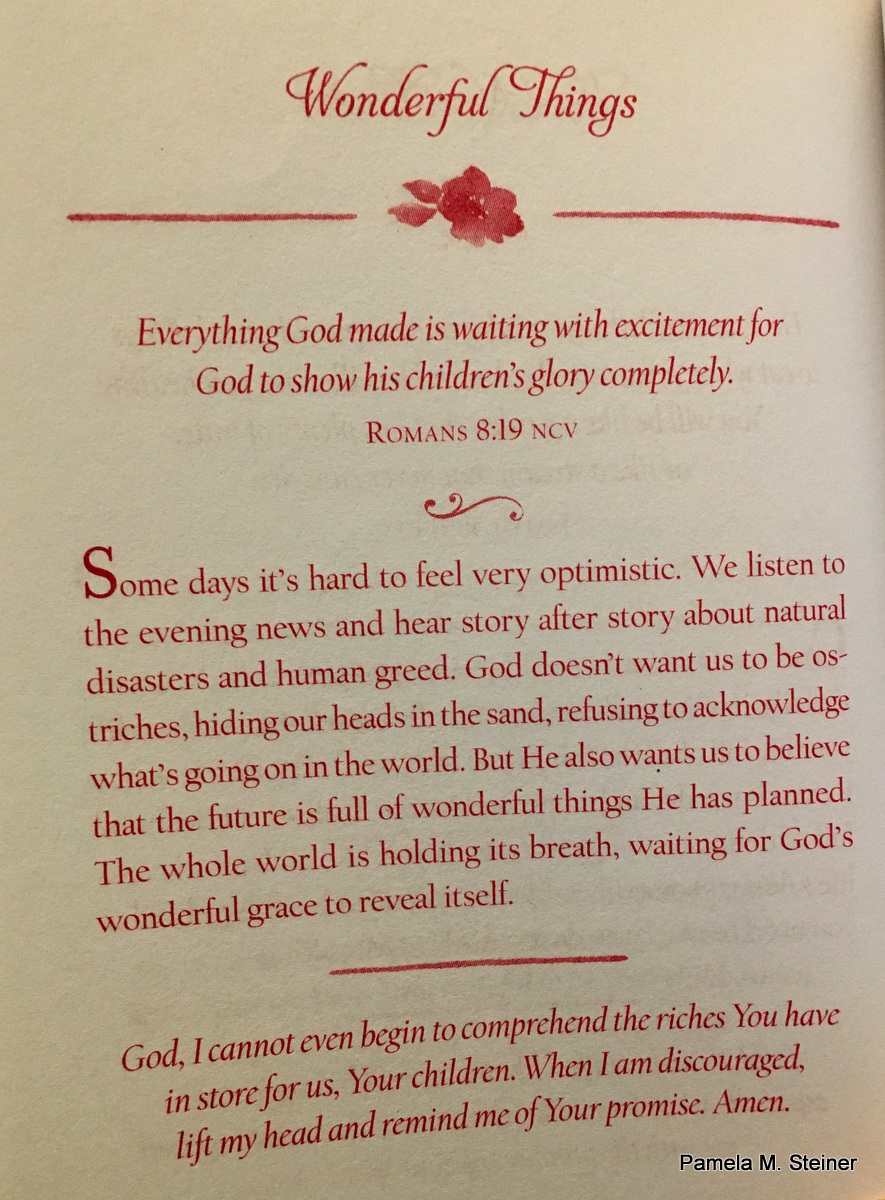 Wonderful Things
Everything God made is waiting with excitement for
God to show his children's glory completely.
Romans 8:19 NCV
Some days it's hard to feel very optimistic. We listen to
the evening news and hear story after story about natural
disasters and human greed. God doesn't want us to be os-
triches, hiding our heads in the sand, refusing to acknowledge
what's going on in the world. But He also wants us to believe
that the future is full of wonderful things He has planned.
The whole world is holding its breath, waiting for God's
wonderful grace to reveal itself.
God, I cannot even begin to comprehend the riches You have
in store for us, Your children. When I am discouraged,
lift my head and remind me of Your promise. Amen.
Pamela M. Steiner